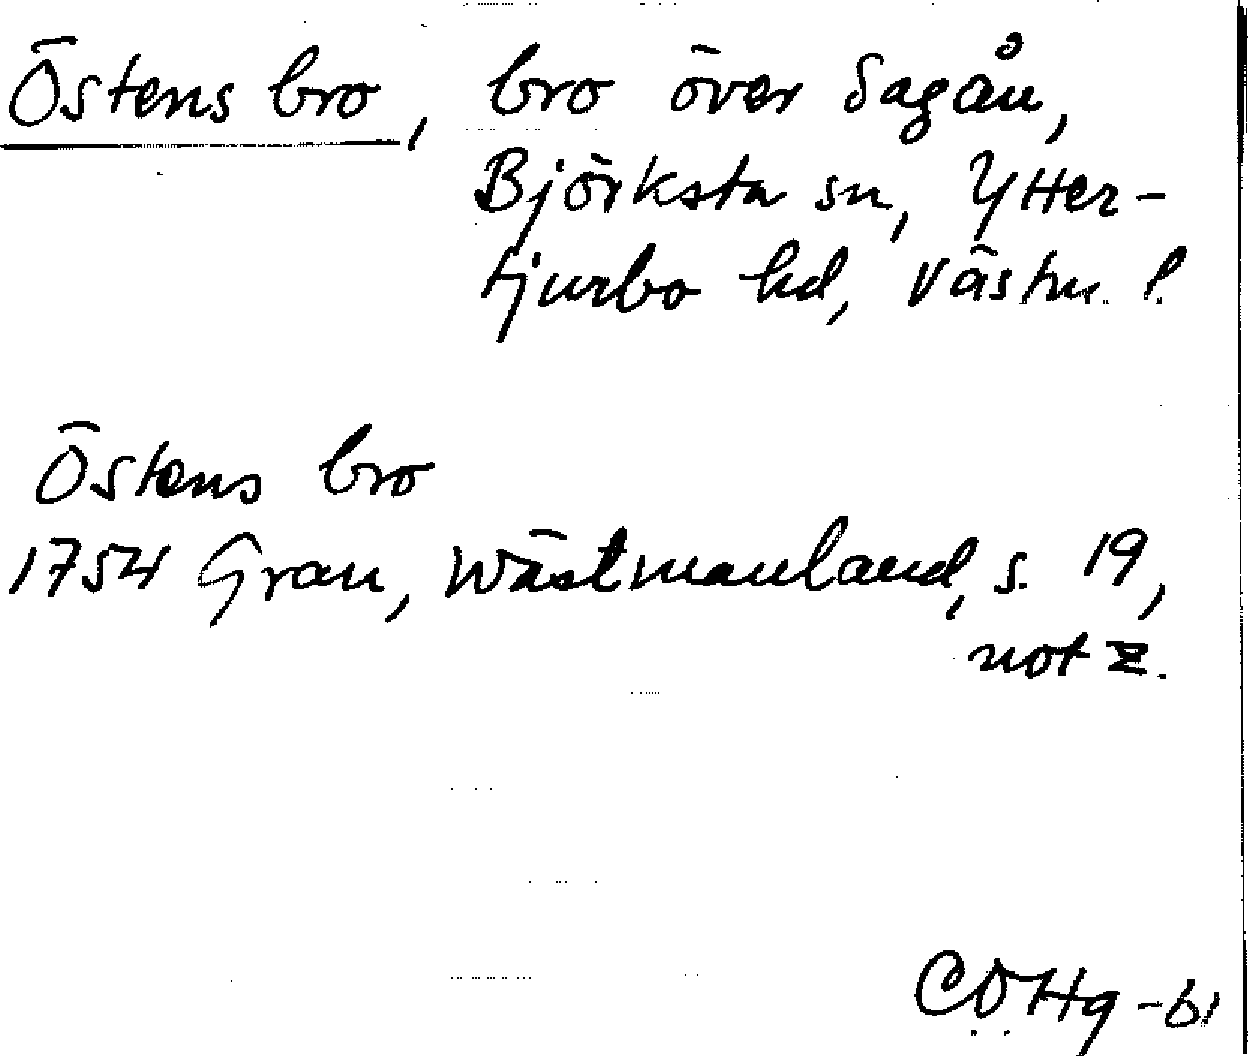 Östens bro, bro över Sagån,
Björksta sn, Ytter-
tjurbo hd, Västm. l.
Östens bro
1754 Grau, Wästmanland, s. 19,
not z.
COHg -61